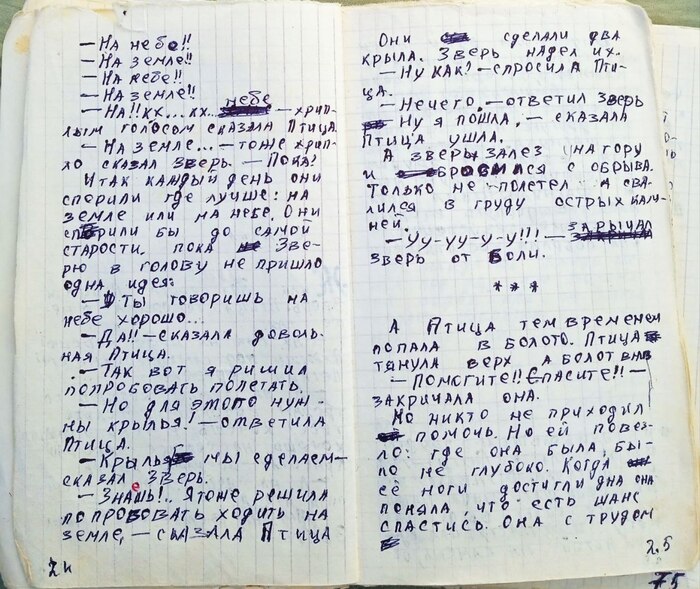 — На небе!!
— На земле!!
— На небе!!
— На земле!!
— На!! кх... кх... небе — хрип-
лым голосом сказала Птица.
— На земле... — тоже хрип-
ло сказал Зверь. — Пока!
Итак каждый день они
спорили где лучше: на
земле или на небе. Они
спорили бы до самой
старости, пока Зве-
рю в голову не пришло
одна идея:
— Ты говоришь на
небе хорошо...
— Да!! — сказала доволь-
ная Птица.
— Так вот я ришил
попробовать полетать.
— Но для этого нуж-
ны крылья! — ответила
Птица.
— Крылья мы сделаем —
сказал Зверь.
— Знаешь!.. Я тоже решила
попробовать ходить на
земле, — сказала Птица
24
Они сделали два
крыла. Зверь надел их.
— Ну как? — спросила Пти-
ца.
— Нечего, — ответил Зверь
Ну я пошла, — сказала
Птица ушла.
А Зверь залез на гору
и бросился с обрыва.
Только не полетел а сва-
лился в груду острых кам-
ней.
— Уу-уу-у-у!!! — зарычал
зверь от боли.
* * *
А Птица тем временем
попала в болото. Птица
тянула верх а болот вниз
— Помогите!! Спасите!! —
закричала она.
Но никто не приходил
помочь. Но ей повез-
ло: где она была, бы-
ло не глубоко. Когда
её ноги достигли дна она
поняла, что есть шанс
спастись. Она с трудом
25
75